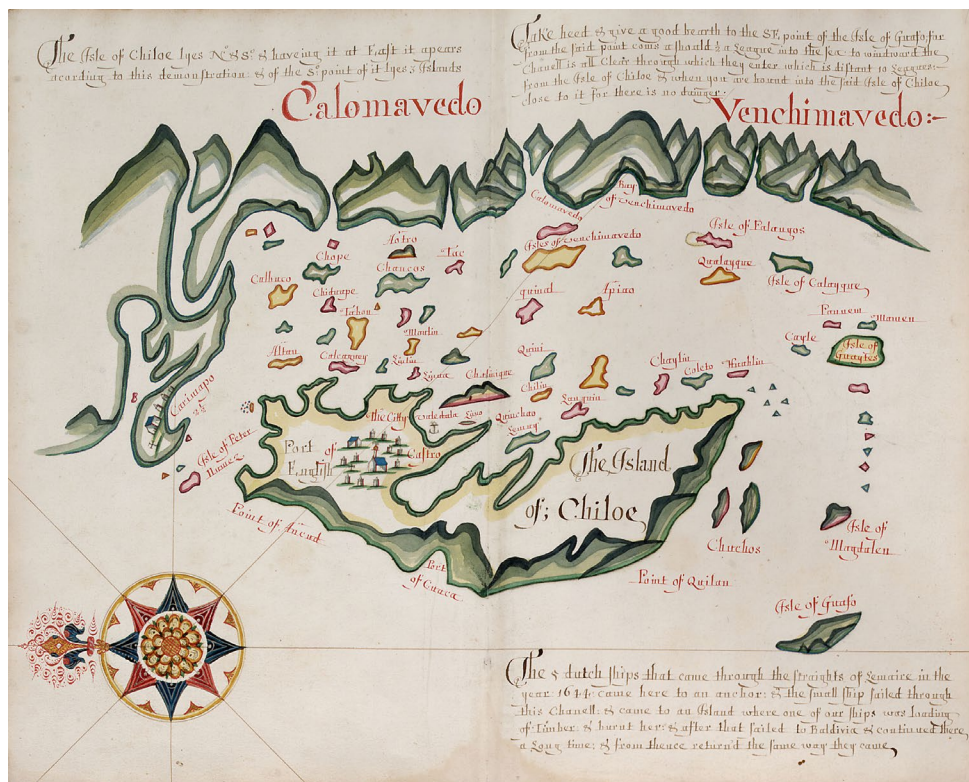 The Isle of Chiloe lyes No: & So: & haveing it at East it apears
according to this demonstration: & of the So: point of it lyes 3 Islands
Take heed & give a good bearth to the SE, point of the Isle of Guafo, for
from the said point coms a shoald ½ a League into the sea to windward the
Chanell is all Clear through which they enter which is distant 10 Leagues
from the Isle of Chiloe & when you are bound into the said Isle of Chiloe
close to it for there is no danger
Calomavedo
Venchimavedo:~
Bay
of Venchimavedo
Calomavedo
Isles of Venchimavedo
Isle of Palangos
Astro
Chope
Tac
Chaucos
Calbuco
Qualayque
Isle of Calayque
Chiduape
quinal
Apiao
Maulin
Pannem
Mamen
Isle of
Guaytes
Cayle
Altau
Calcaguey
Quini
Chaylin
Coleto
Chilin
Carimapo
B
The Citty
Castro
Quinchao
Lemuy
Port of
English
Isle of Peter
Nunez
The Island
of; Chiloe
Point of Ancud
Port
of Cuaca
Chuchos
Point of Quilan
Isle of
Magdalen
Isle of Guafo
The 4 dutch ships that came through the straights of Lemaire in the
year 1644: came here to an anchor: & the small ship sailed through
this Chanell: & came to an Island where one of our ships was loading
of Timber: & burnt her: & after that sailed to Baldivia & continued there
a Long time: & from thence return'd the same way they came